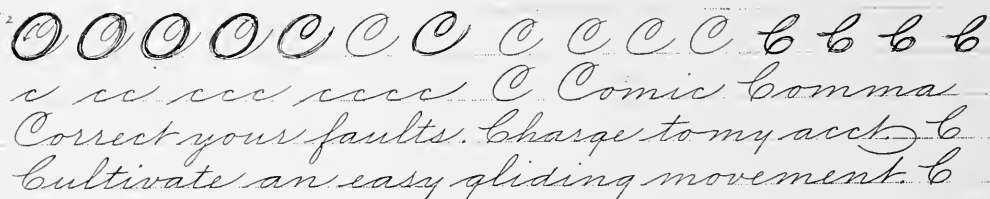 2 O O O O C C C C C C C C C C C
c cc ccc cccc C Comic Comma
Correct your faults. Charge to my acct. C
Cultivate an easy gliding movement. C